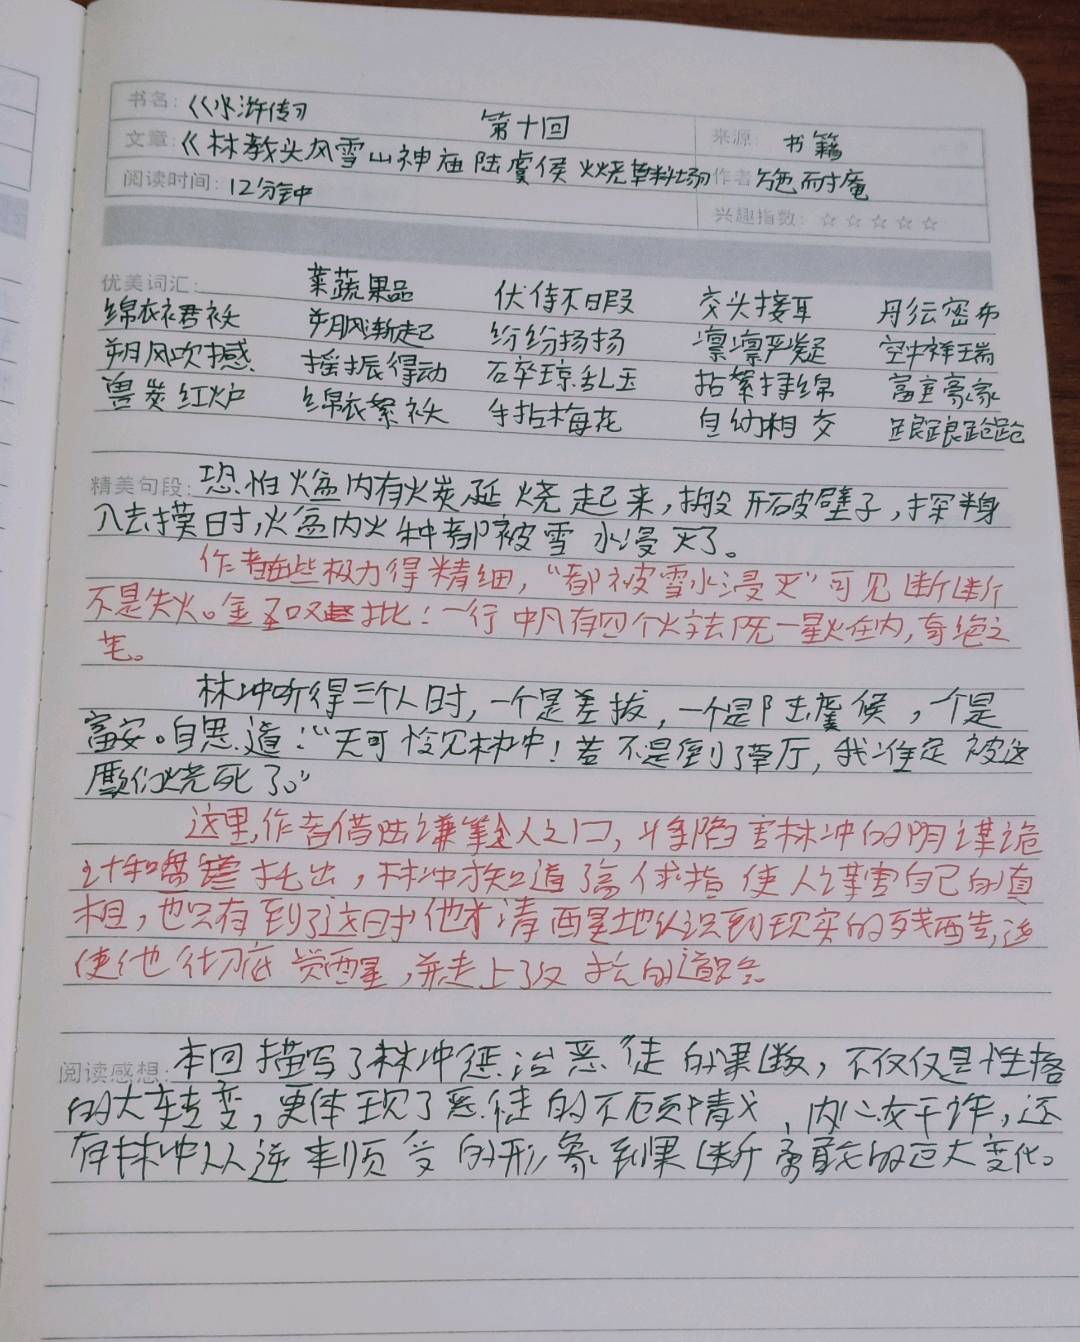 书名: 《水浒传》
第十回
来源: 书籍
文章: 《林教头风雪山神庙 陆虞侯火烧草料场》
作者 施耐庵
阅读时间: 12分钟
兴趣指数: ☆☆☆☆☆
优美词汇: 菜蔬果品 伏侍不暇 交头接耳 彤云密布
绵衣裙袄 朔风渐起 纷纷扬扬 凛凛严凝 空中祥瑞
朔风吹撼 摇振得动 碎琼乱玉 拈絮挦绵 富室豪家
兽炭红炉 绵衣絮袄 手拈梅花 自幼相交 踉踉跄跄
精美句段: 恐怕火盆内有火炭延烧起来,搬开破壁子,探半身
入去摸时,火盆内火种都被雪水浸灭了。
作者在此极力得精细,“都被雪水浸灭”可见断断
不是失火。金圣叹批:一行中凡有四个火字既一星火在内,奇绝之
笔。
林冲听得三个人时,一个是差拨,一个是陆虞候,一个是
富安。自思道:“天可怜见林冲!若不是倒了草厅,我准定被这
厮们烧死了。”
这里,作者借陆谦等人之口,将陷害林冲的阴谋诡
计和盘托出,林冲才知道了高俅指使人谋害自己的真
相,也只有到了这时他才清醒地认识到现实的残酷,迫
使他彻底觉醒,并走上了反抗的道路。
阅读感想: 本回描写了林冲惩治恶徒的果断,不仅仅是性格
的大转变,更体现了恶徒的不顾情义,内心奸诈,还
有林冲从逆来顺受的形象到果断勇敢的巨大变化。